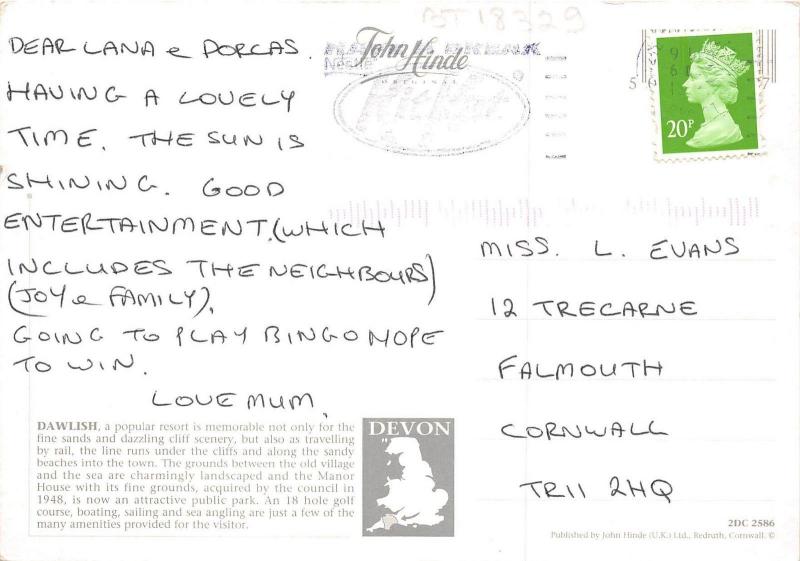 BT 18329
DEAR LANA & DORCAS.
HAVING A LOVELY
TIME. THE SUN IS
SHINING. GOOD
ENTERTAINMENT. (WHICH
INCLUDES THE NEIGHBOURS)
(JOY & FAMILY).
GOING TO PLAY BINGO HOPE
TO WIN.
LOVE MUM.
John Hinde
ORIGINAL
20P
MISS. L. EVANS
12 TRECARNE
FALMOUTH
CORNWALL
TR11 2HQ
DAWLISH, a popular resort is memorable not only for the
fine sands and dazzling cliff scenery, but also as travelling
by rail, the line runs under the cliffs and along the sandy
beaches into the town. The grounds between the old village
and the sea are charmingly landscaped and the Manor
House with its fine grounds, acquired by the council in
1948, is now an attractive public park. An 18 hole golf
course, boating, sailing and sea angling are just a few of the
many amenities provided for the visitor.
DEVON
2DC 2586
Published by John Hinde (U.K.) Ltd., Redruth, Cornwall. ©